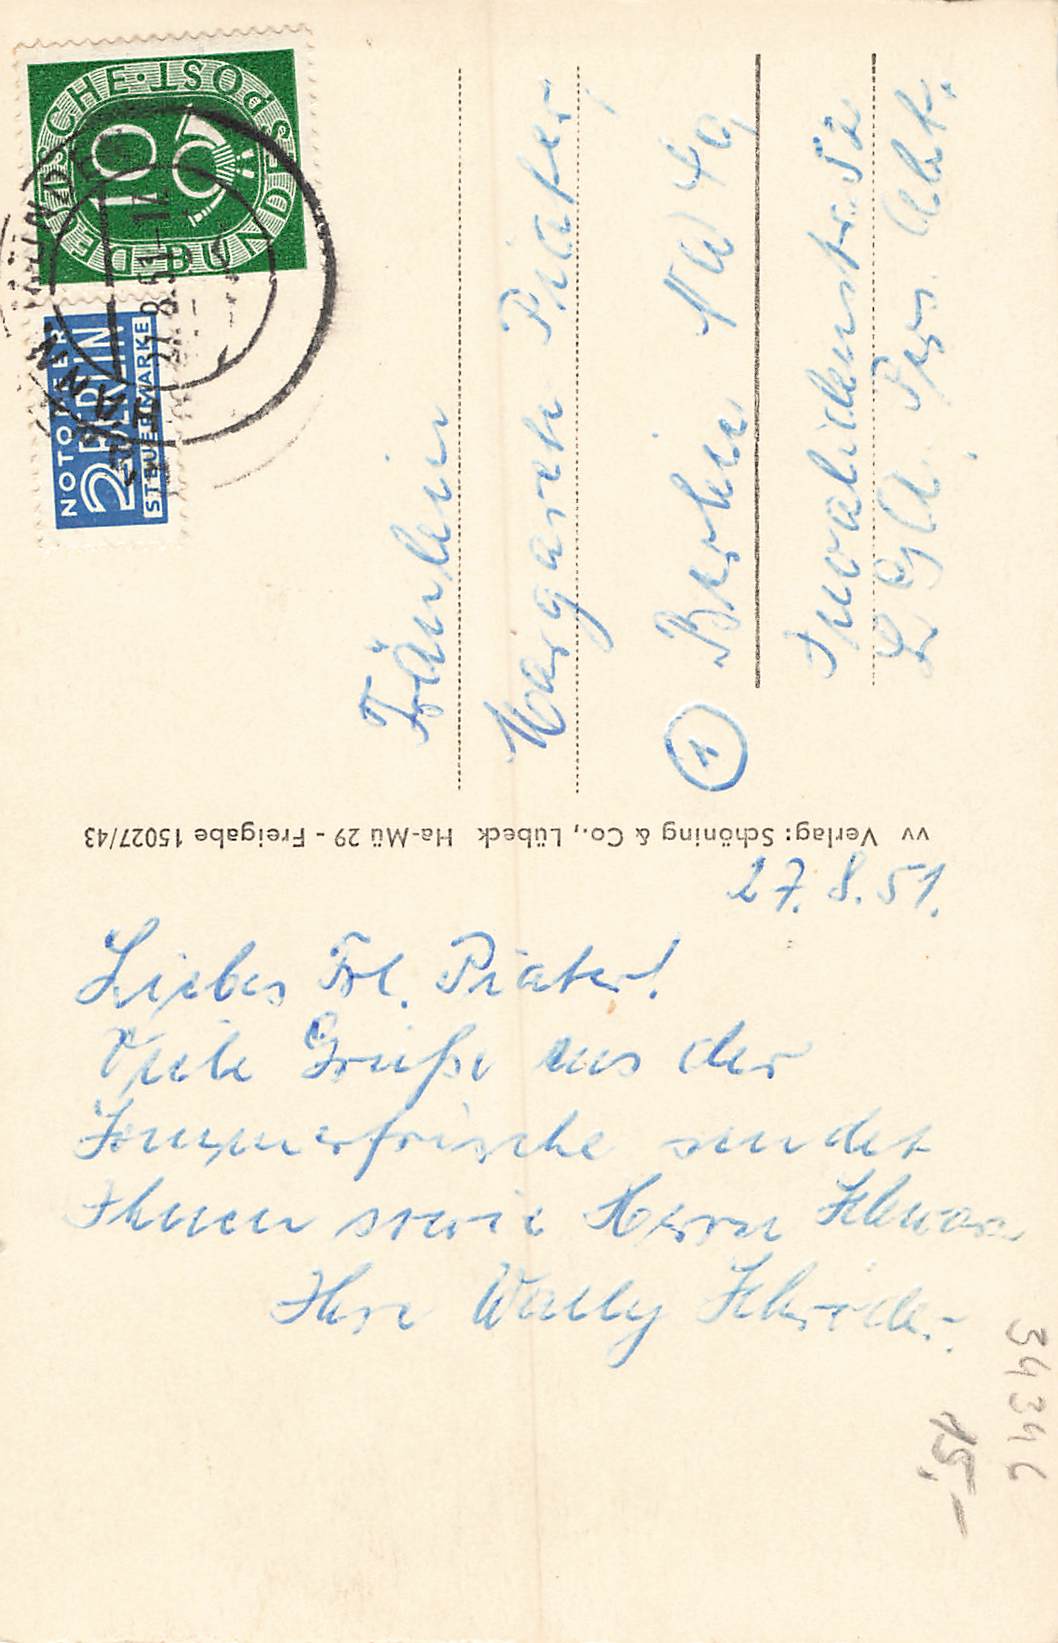 DEUTSCHE · BUNDESPOST
10
NOTOPFER
2 BERLIN
STEUERMARKE
27.8.51-17
Fräulein
Margarete Piater
① Berlin NW 40
Invalidenstr. 52
LGA. Abt.
vv Verlag: Schöning & Co., Lübeck Ha-Mü 29 - Freigabe 15027/43
27.8.51.
Liebes Frl. Piater!
Viele Grüße aus der
Sommerfrische sendet
Ihnen sowie Herrn
Ihre Wally Schröder.
3434
15,-